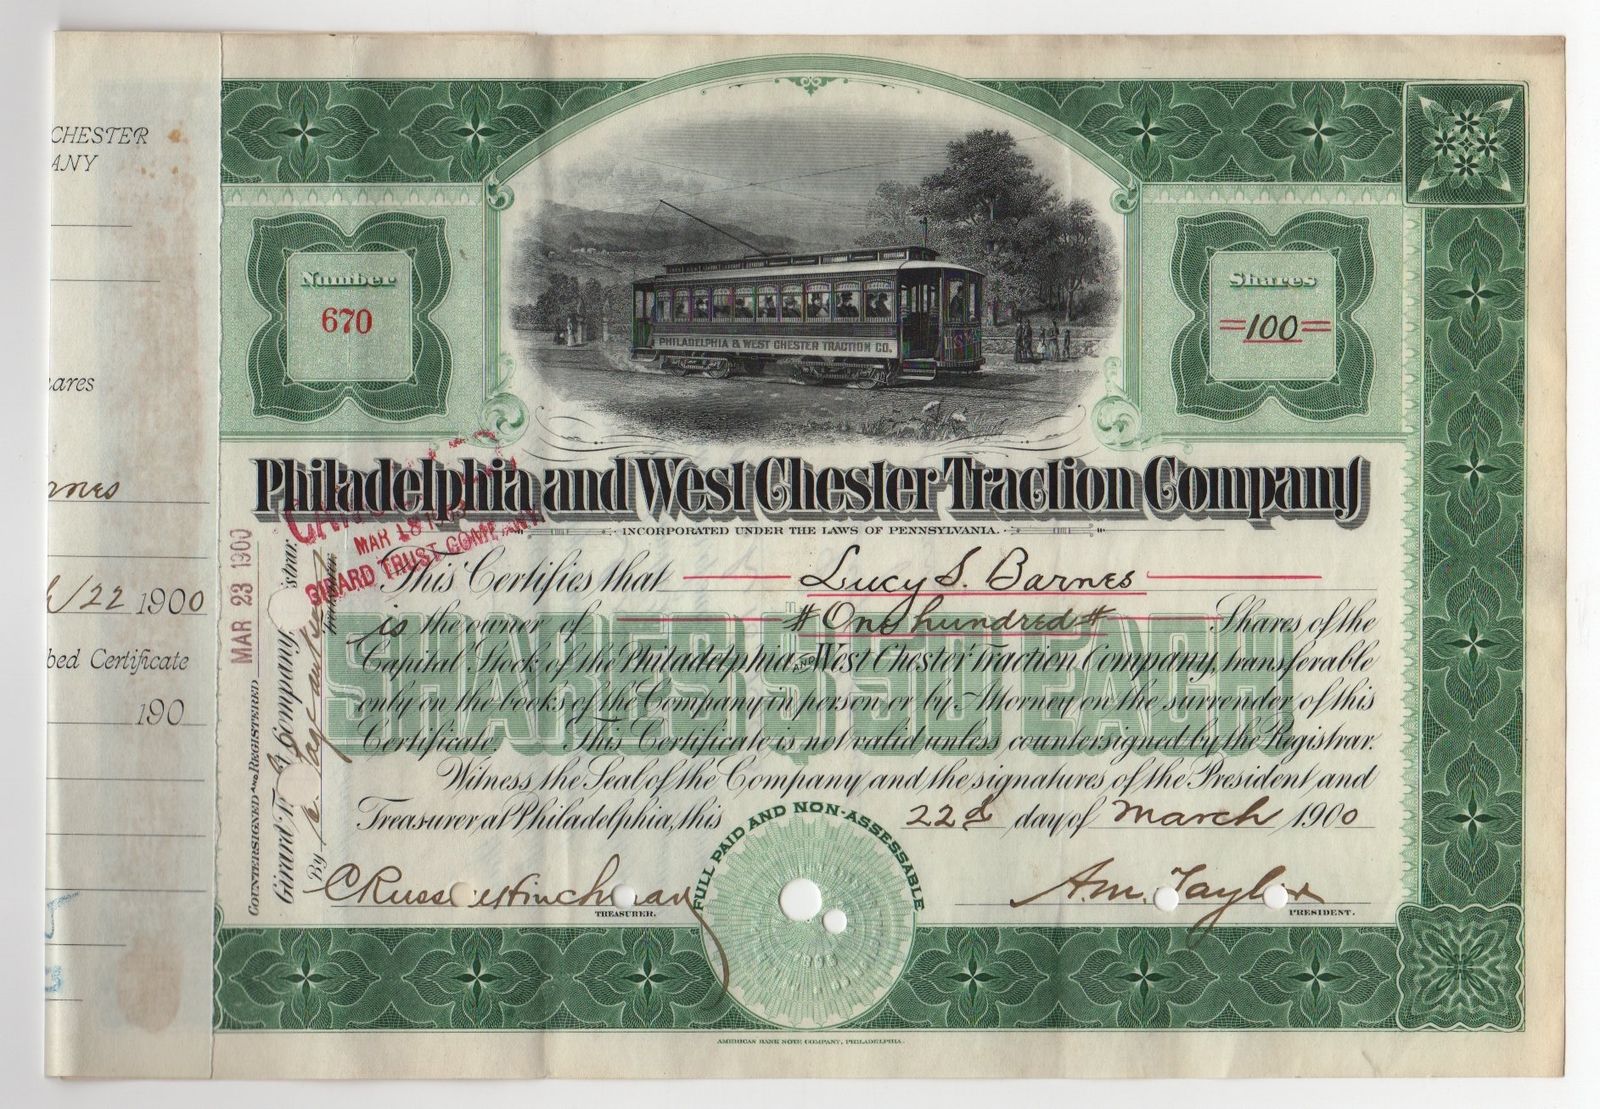 CHESTER
ANY
ares
rnes
22 1900
bed Certificate
190
Number
670
Shares
=100=
PHILADELPHIA & WEST CHESTER TRACTION CO.
Philadelphia and West Chester Traction Company
INCORPORATED UNDER THE LAWS OF PENNSYLVANIA.
MAR 18
GIRARD TRUST COMPANY
MAR 23 1900
COUNTERSIGNED AND REGISTERED
Girard Company,
By
This Certifies that Lucy S. Barnes
is the owner of # One hundred # Shares of the
Capital Stock of the Philadelphia AND West Chester Traction Company, transferable
only on the books of the Company in person or by Attorney on the surrender of this
Certificate. This Certificate is not valid unless countersigned by the Registrar.
SHARES $50 EACH
Witness the Seal of the Company and the signatures of the President and
Treasurer at Philadelphia, this 22d day of March 1900
FULL PAID AND NON-ASSESSABLE
C Russell Hinchman
TREASURER.
A.M. Taylor
PRESIDENT.
AMERICAN BANK NOTE COMPANY, PHILADELPHIA.